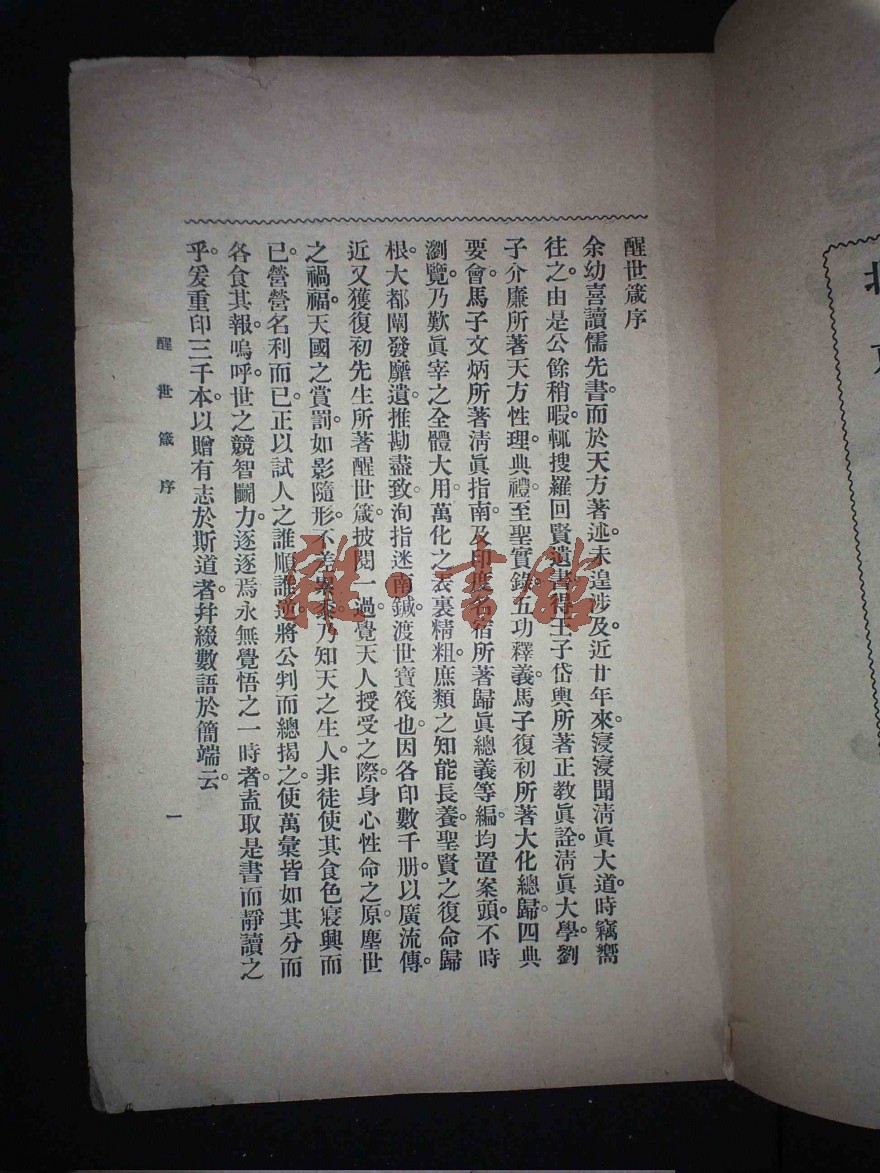 醒世箴序
余幼喜讀儒先書。而於天方著述。未遑涉及。近廿年來。寖寖聞清眞大道。時竊嚮
往之。由是公餘稍暇。輒搜羅回賢遺書。得王子岱輿所著正教眞詮。清眞大學。劉
子介廉所著天方性理。典禮。至聖實錄。五功釋義。馬子復初所著大化總歸。四典
要會。馬子文炳所著清眞指南。及印度名宿所著歸眞總義等編。均置案頭。不時
瀏覽。乃歎眞宰之全體大用。萬化之表裏精粗。庶類之知能長養。聖賢之復命歸
根。大都闡發靡遺。推勘盡致。洵指迷南鍼。渡世寶筏也。因各印數千册。以廣流傳。
近又獲復初先生所著醒世箴。披閱一過。覺天人授受之際。身心性命之原。塵世
之禍福。天國之賞罰。如影隨形。不差累黍。乃知天之生人。非徒使其食色寢興而
已。營營名利而已。正以試人之誰順誰逆。將公判而總揭之。使萬彙皆如其分而
各食其報。嗚呼。世之競智鬭力。逐逐焉永無覺悟之一時者。盍取是書而靜讀之
乎。爰重印三千本。以贈有志於斯道者。幷綴數語於簡端云。
醒世箴序
一
雜·書館
北